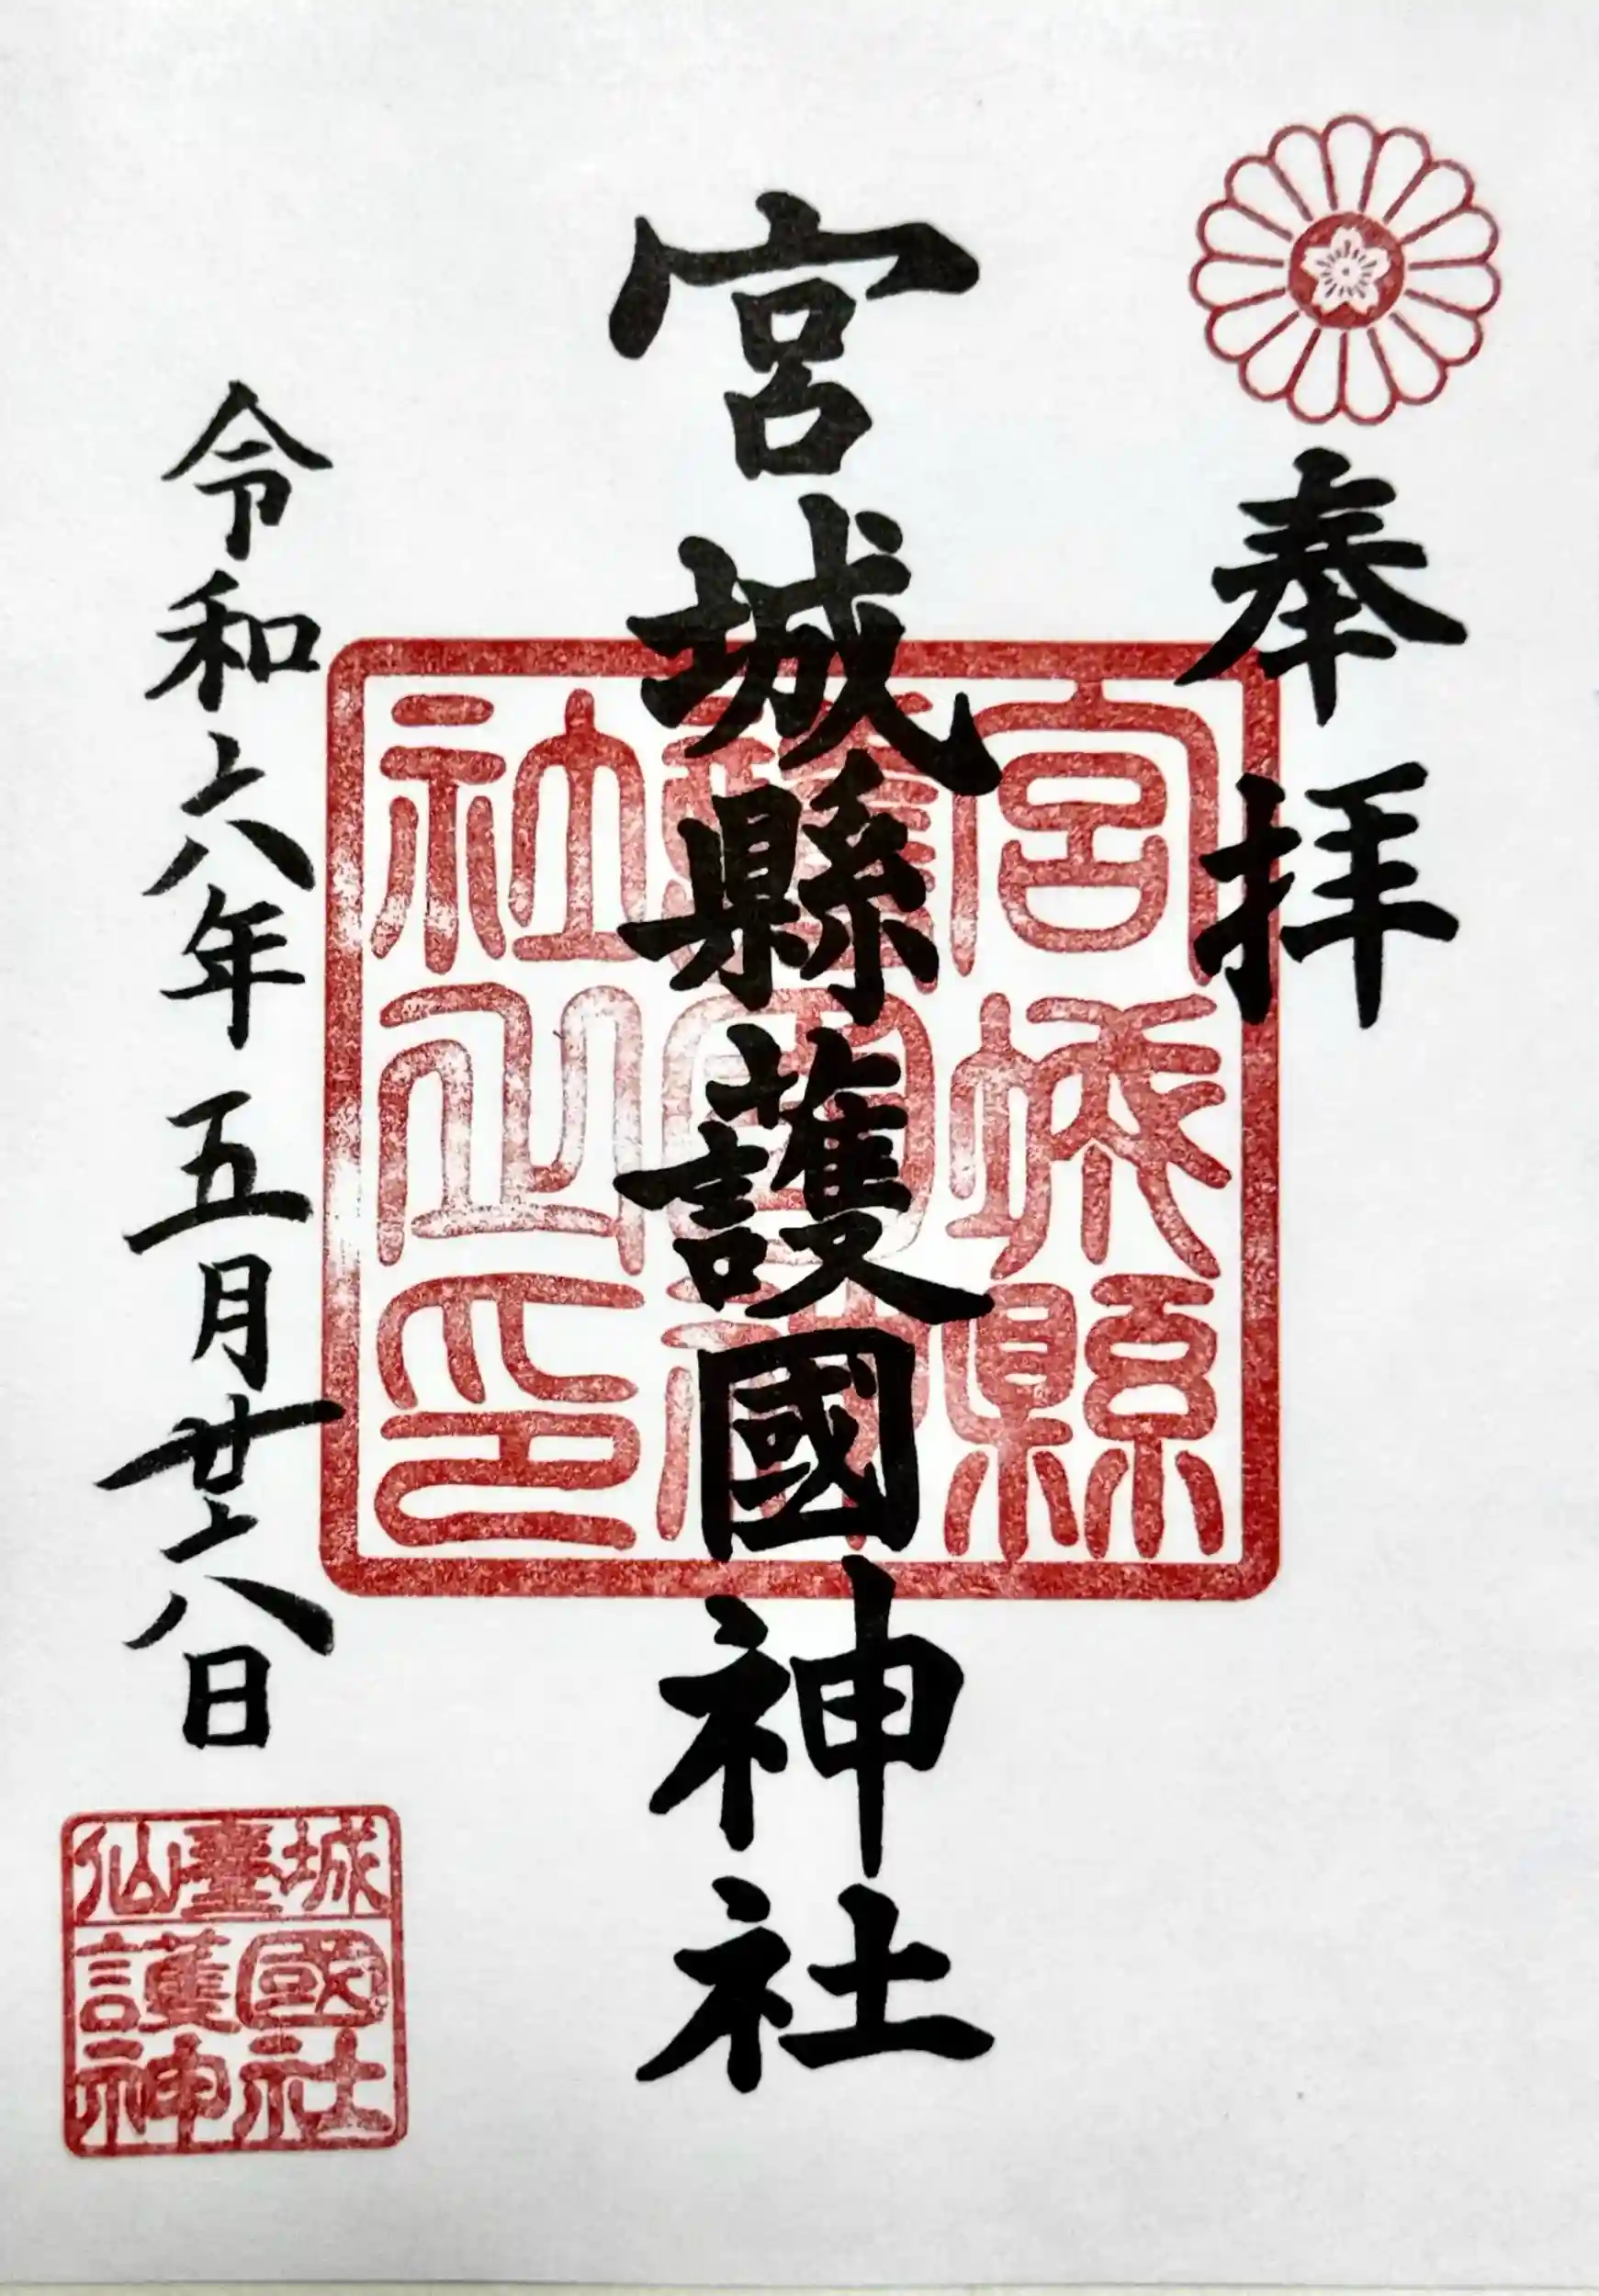 奉拝
宮城縣護國神社
宮城縣
護國神
社之印
令和六年五月廿八日
仙臺城
護國
神社